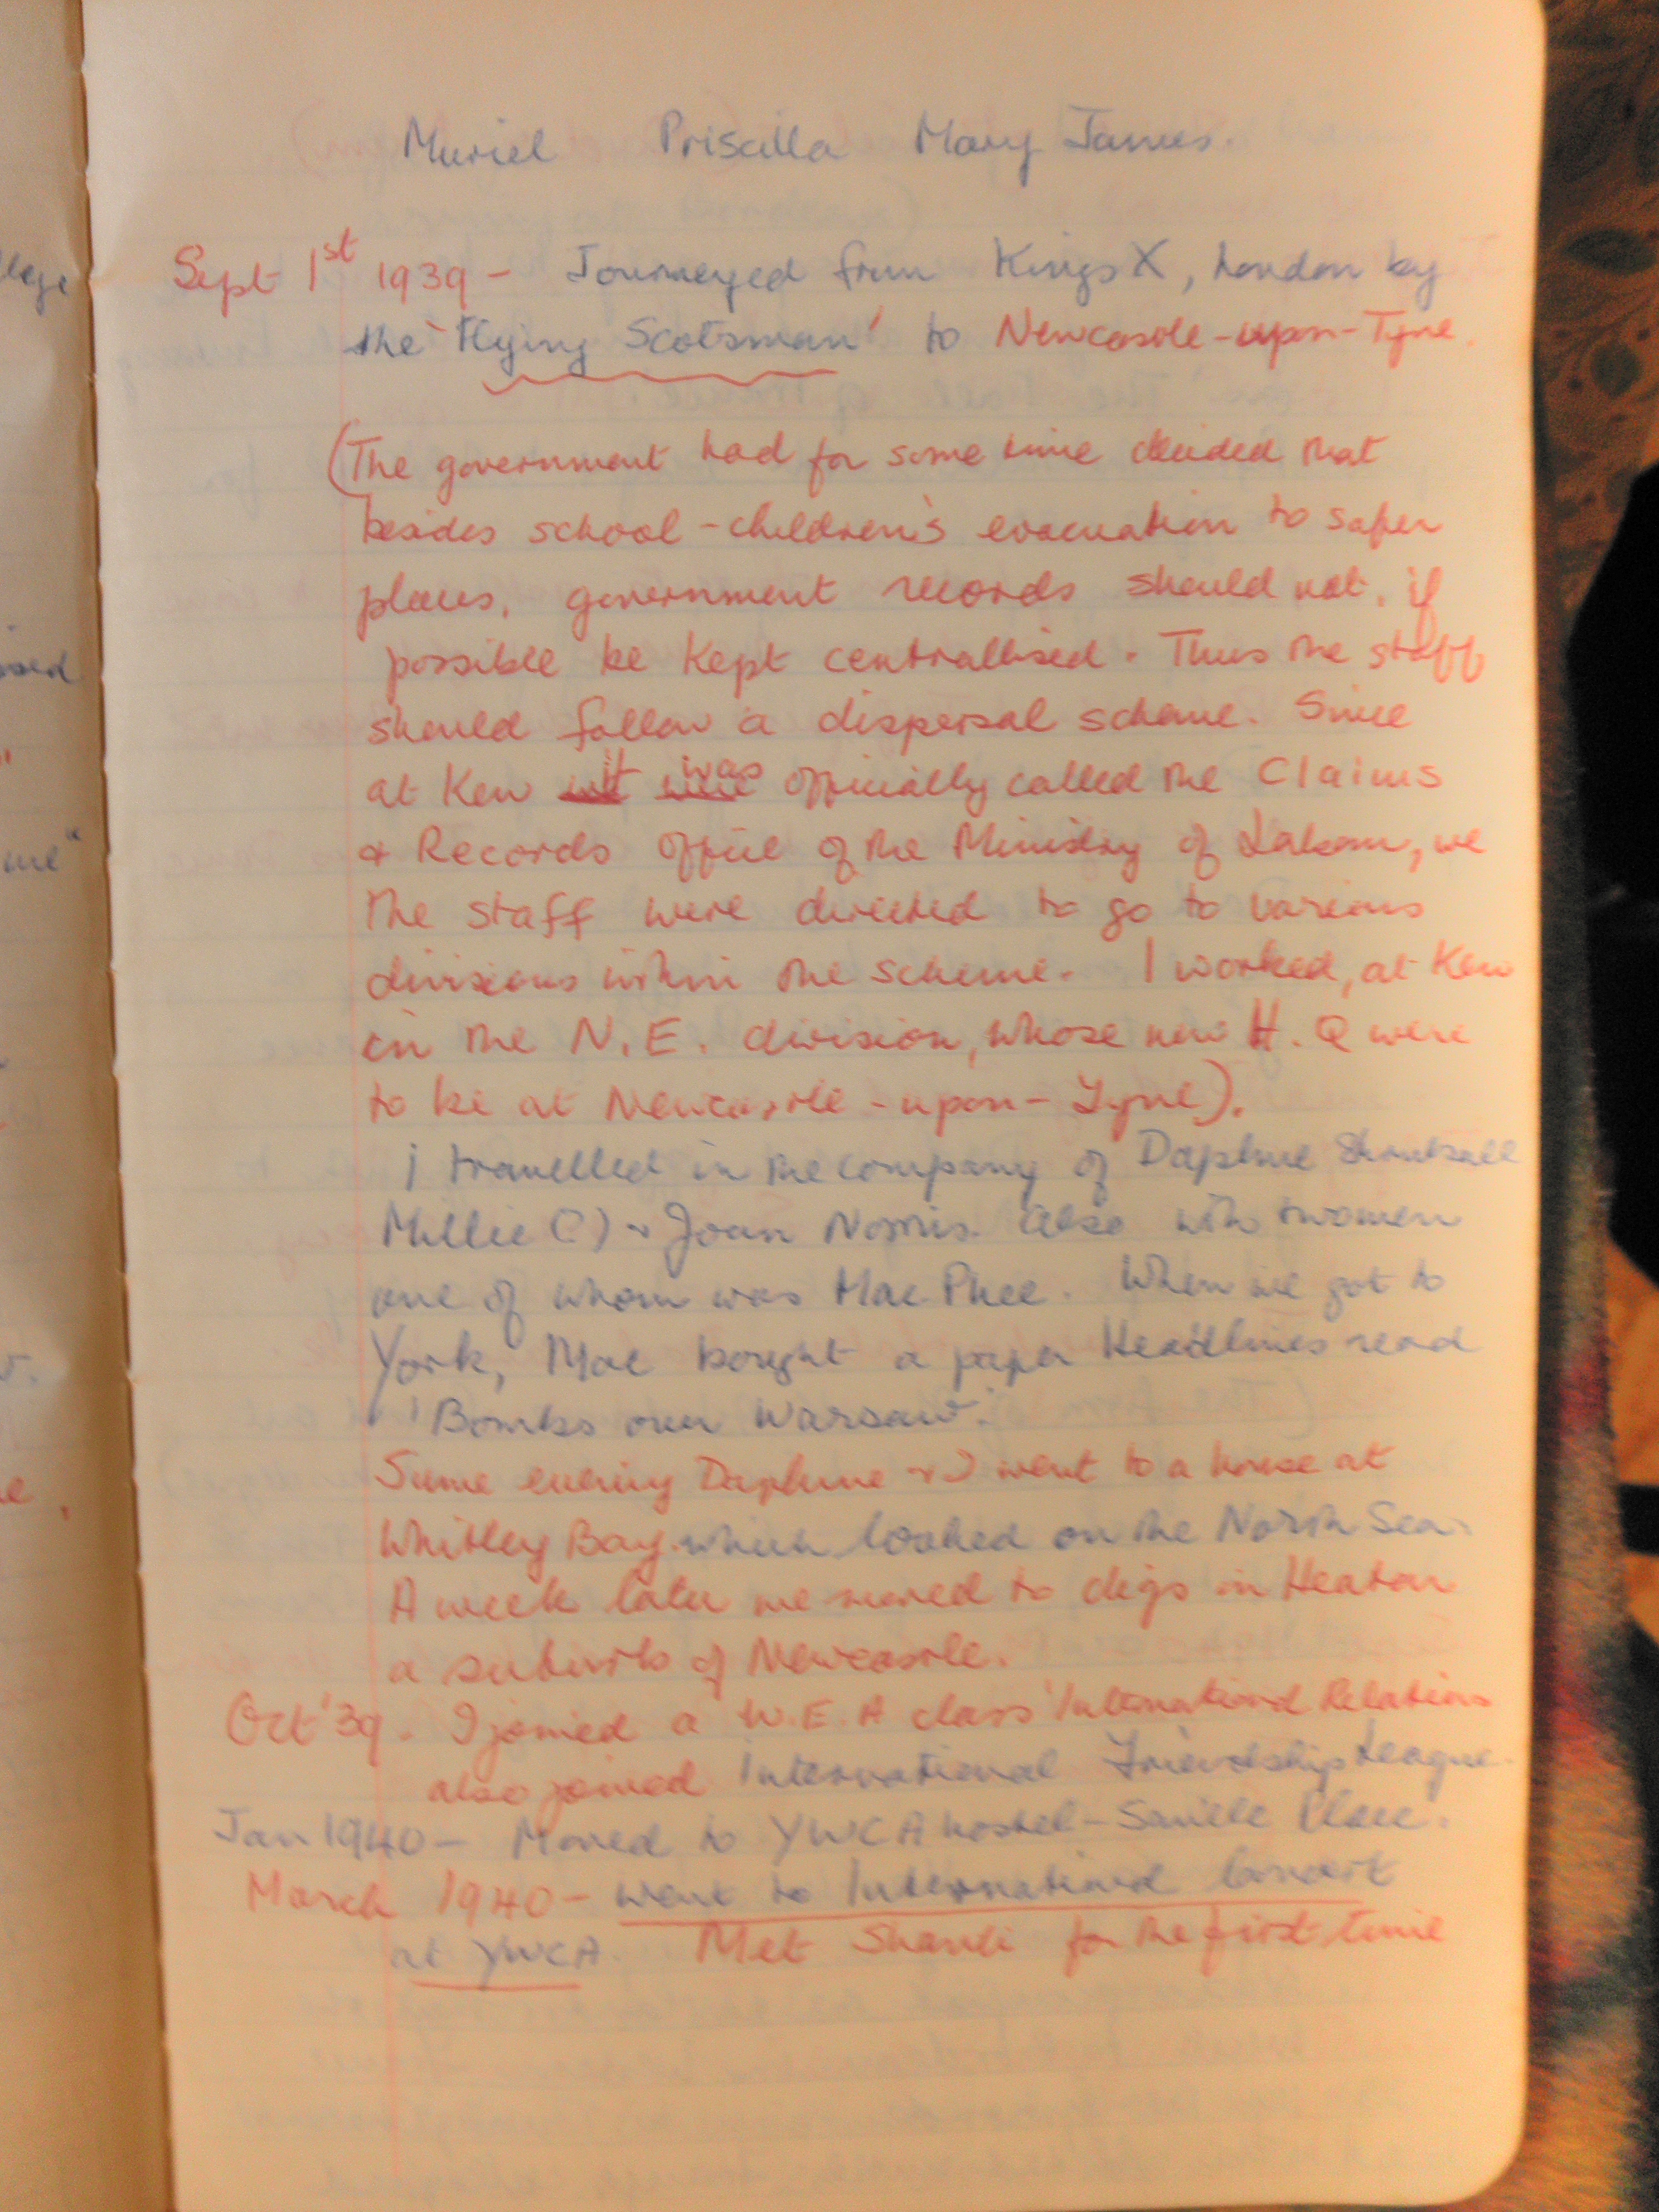 Muriel Priscilla Mary James.
Sept 1st 1939 - Journeyed from Kings X, London by
the 'Flying Scotsman' to Newcastle-upon-Tyne.
(The government had for some time decided that
besides school-children's evacuation to safer
places, government records should not, if
possible be kept centrallised. Thus the staff
should follow a dispersal scheme. Since
at Kew it was officially called the Claims
& Records Office of the Ministry of Labour, we
the staff were directed to go to various
divisions within the scheme. I worked, at Kew
in the N.E. division, whose new H.Q were
to be at Newcastle-upon-Tyne).
I travelled in the company of Daphne
Millie (?) & Joan Norris. Also with women
one of whom was Mac Phee. When we got to
York, Mac bought a paper Headlines read
'Bombs over Warsaw'.
Same evening Daphne & I went to a house at
Whitley Bay which looked on the North Sea.
A week later we moved to digs in Heaton
a suburb of Newcastle.
Oct '39 - I joined a W.E.A class 'International Relations
also joined International Friendship League.
Jan 1940 - Moved to YWCA hostel - Saville Place.
March 1940 - went to International
at YWCA. Met for the first time